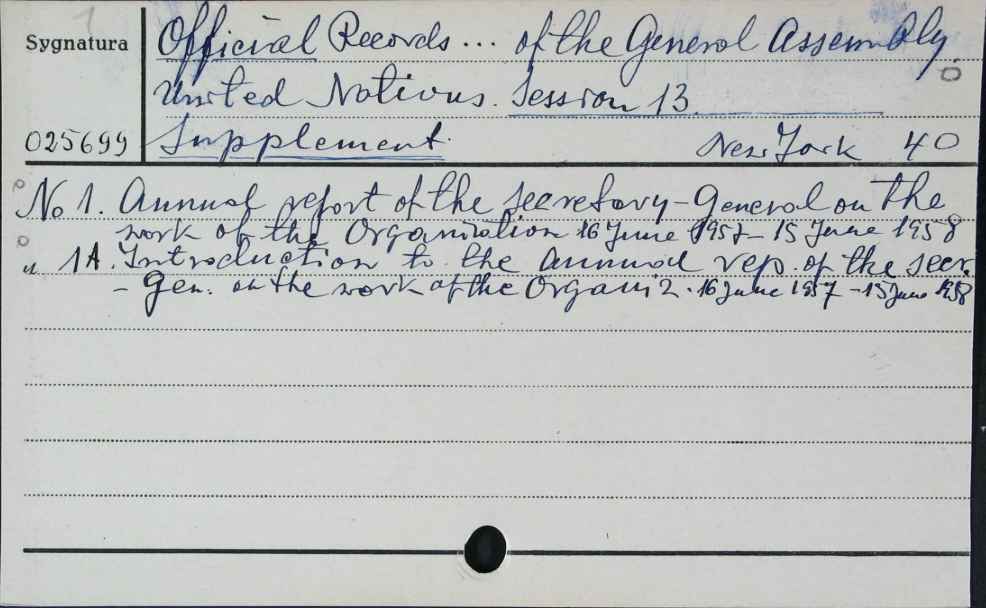 1
Sygnatura
Official Records ... of the General Assembly.
United Nations. Session 13.
025699
Supplement.
New York 40
No 1. Annual report of the secretary-General on the
work of the Organization 16 June 1957 - 15 June 1958
" 1A. Introduction to the annual rep. of the secr.
- Gen. on the work of the Organiz. 16 June 1957 - 15 June 1958